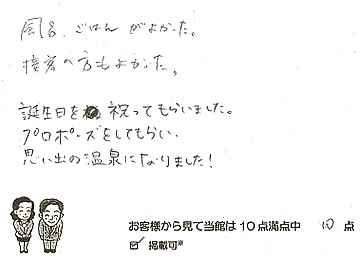 風呂、ごはんがよかった。
接客の方もよかった。
誕生日を祝ってもらいました。
プロポーズをしてもらい、
思い出の温泉になりました!
お客様から見て当館は10点満点中 10 点
☑ 掲載可※